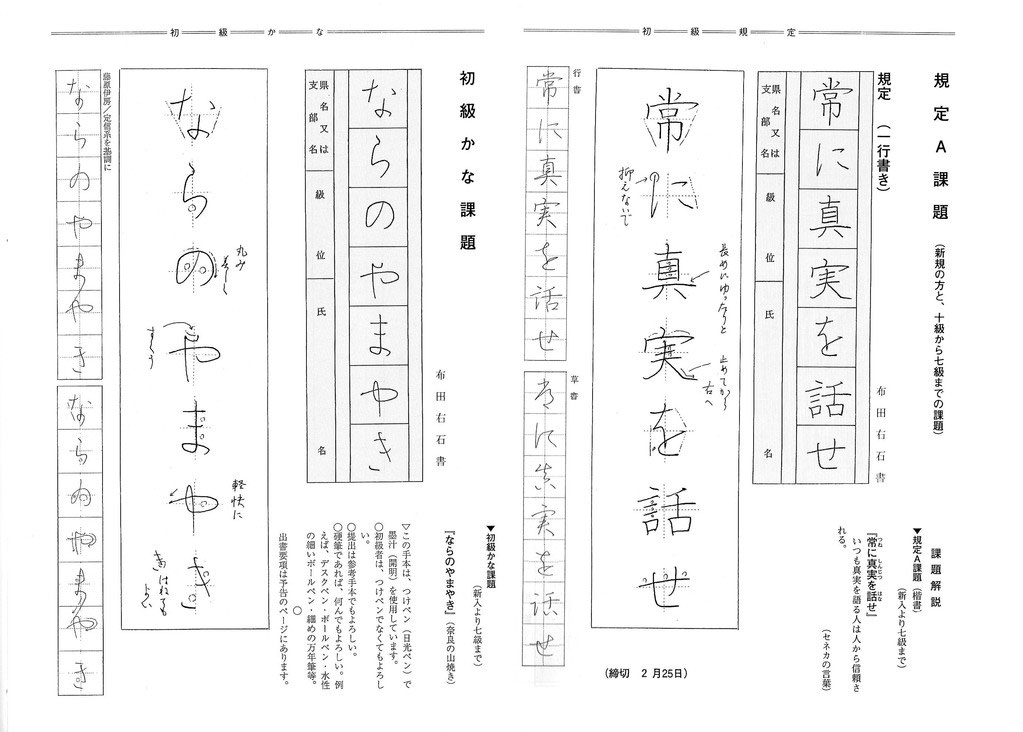 初級規定
規定A課題（新規の方と、十級から七級までの課題）
規定（一行書き）
布田右石書
常に真実を話せ
県名又は
支部名
級位
氏名
常に真実を話せ
抑えないで
長めにゆったりと
止めてから
右へ
行書
常に真実を話せ
草書
常に真実を話せ
課題解説
▼規定A課題（楷書）
（新入より七級まで）
『常に真実を話せ』
つね しんじつ はな
いつも真実を語る人は人から信頼さ
れる。
（セネカの言葉）
（締切　2月25日）
初級かな
初級かな課題
布田右石書
ならのやまやき
県名又は
支部名
級位
氏名
ならのやまやき
丸み
軽快に
き はねても
よい
藤原伊房／定信系を基調に
ならのやまやき
ならのやまやき
▼初級かな課題
（新入より七級まで）
『ならのやまやき』（奈良の山焼き）
▽この手本は、つけペン（日光ペン）で
墨汁（開明）を使用しています。
○初級者は、つけペンでなくてもよろし
い。
○提出は参考手本でもよろしい。
○硬筆であれば、何んでもよろしい。例
えば、デスクペン・ボールペン・水性
の細いボールペン・細めの万年筆等。
○
出書要項は予告のページにあります。